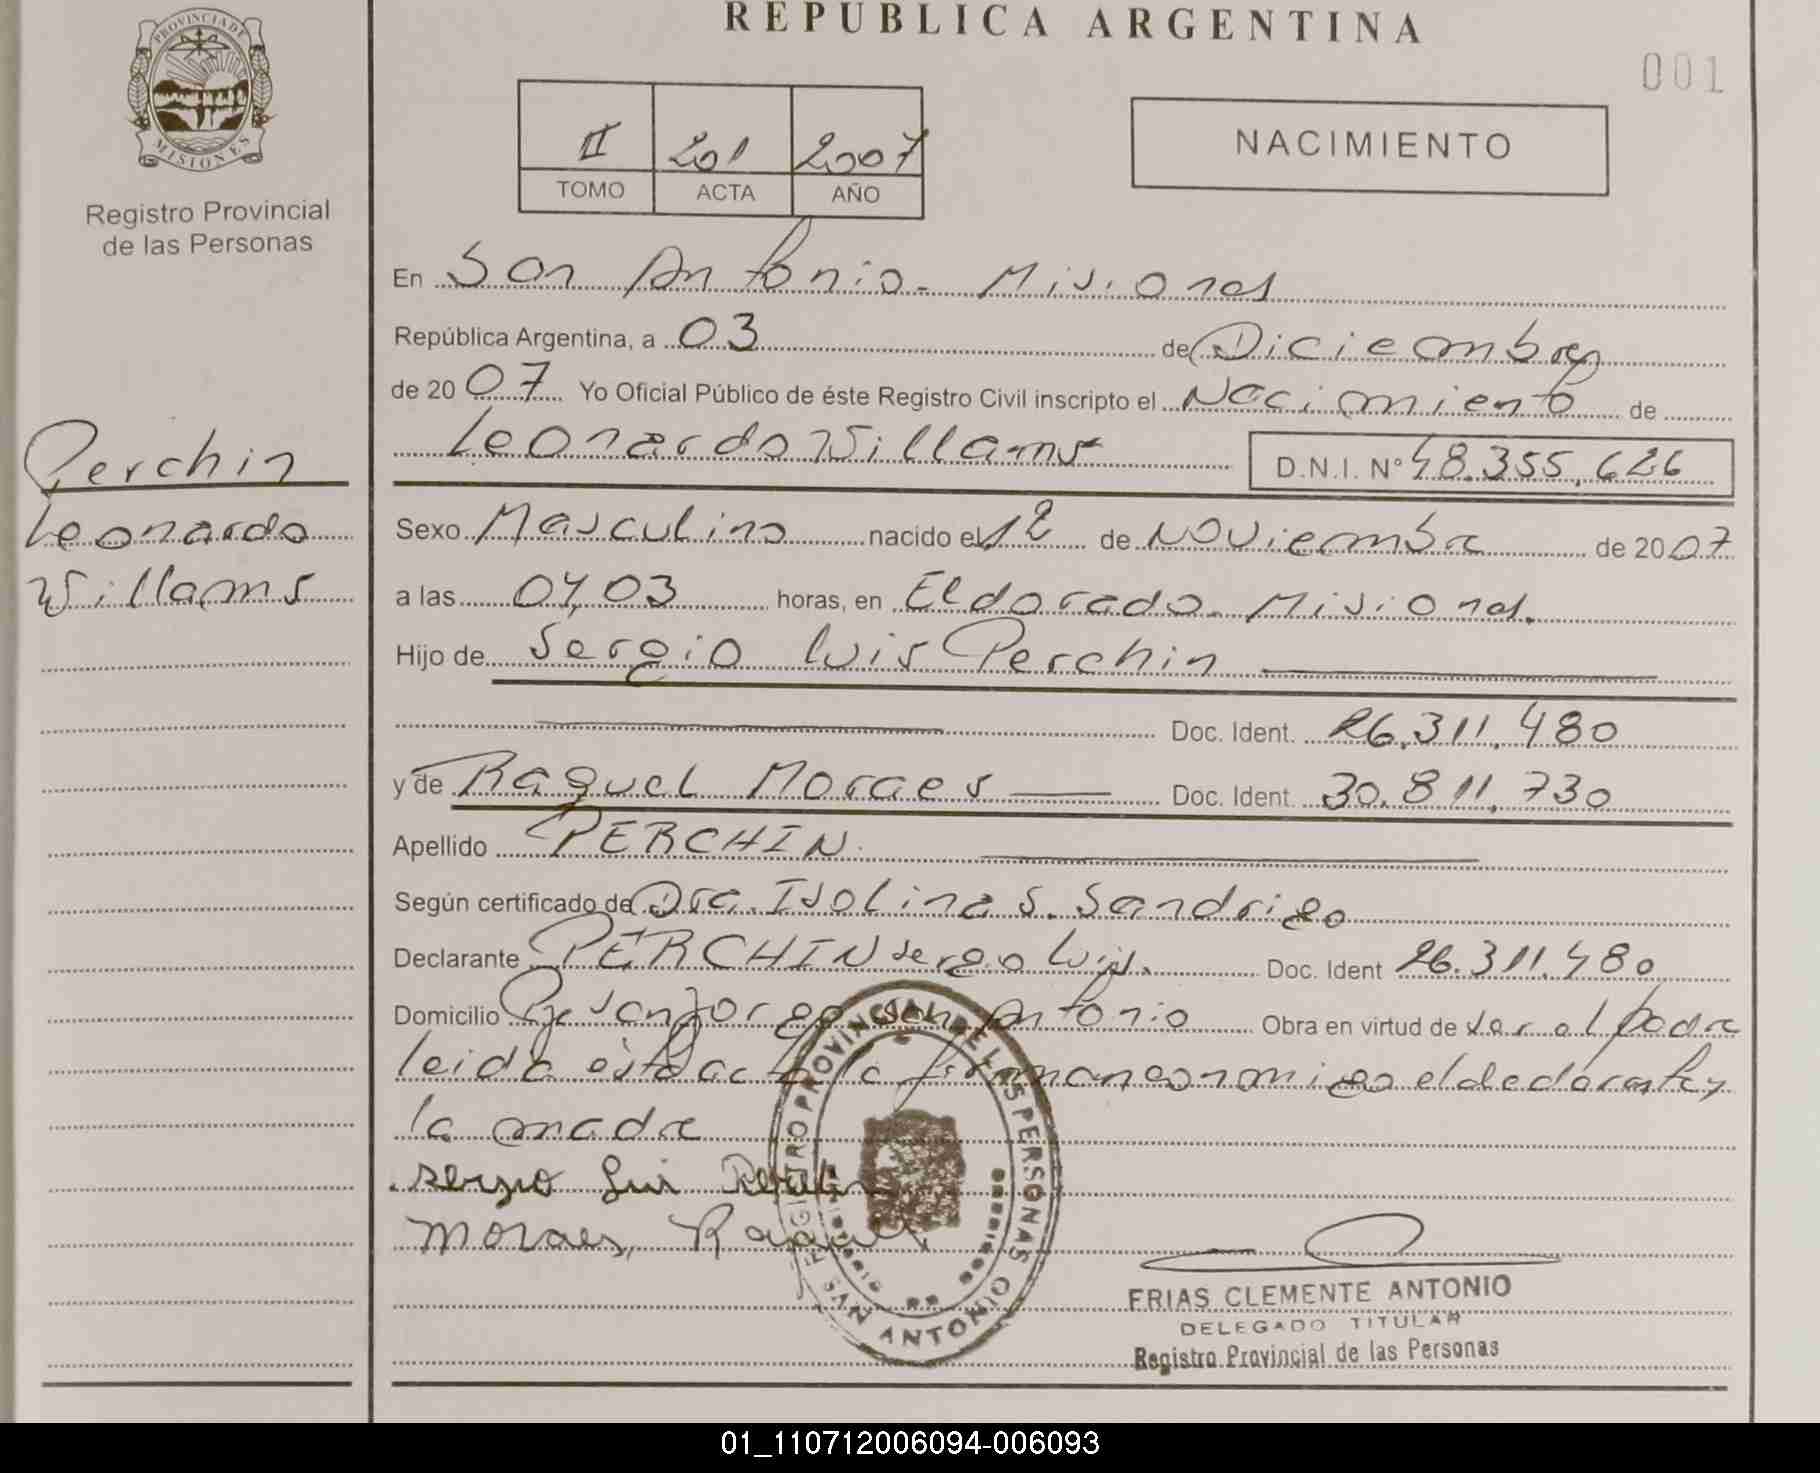 REPUBLICA ARGENTINA
001
PROVINCIA DE MISIONES
Registro Provincial
de las Personas
II 201 2007
TOMO ACTA AÑO
NACIMIENTO
En San Antonio - Misiones
República Argentina, a 03 de Diciembre
de 2007 Yo Oficial Público de éste Registro Civil inscripto el Nacimiento de
Leonardo Willams D.N.I. Nº 48.355.626
Perchin
Leonardo
Willams
Sexo Masculino nacido el 12 de Noviembre de 2007
a las 04,03 horas, en Eldorado - Misiones.
Hijo de Sergio Luis Perchin
Doc. Ident. 26.311.480
y de Raquel Moraes Doc. Ident. 30.811.730
Apellido PERCHIN
Según certificado de Dra. Isolina S. Sandrigo
Declarante PERCHIN Sergio Luis. Doc. Ident 26.311.480
Domicilio Pje San Jorge San Antonio Obra en virtud de ser el padre
leida esta acta la firman conmigo el declarante y
la madre
Sergio Luis Perchin
Moraes, Raquel
REGISTRO PROVINCIAL DE LAS PERSONAS
SAN ANTONIO
FRIAS CLEMENTE ANTONIO
DELEGADO TITULAR
Registro Provincial de las Personas
01_110712006094-006093